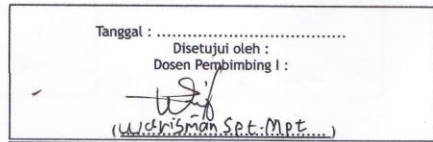 Tanggal : ....................................
Disetujui oleh :
Dosen Pembimbing I :
(Warisman Spt.Mpt.....)